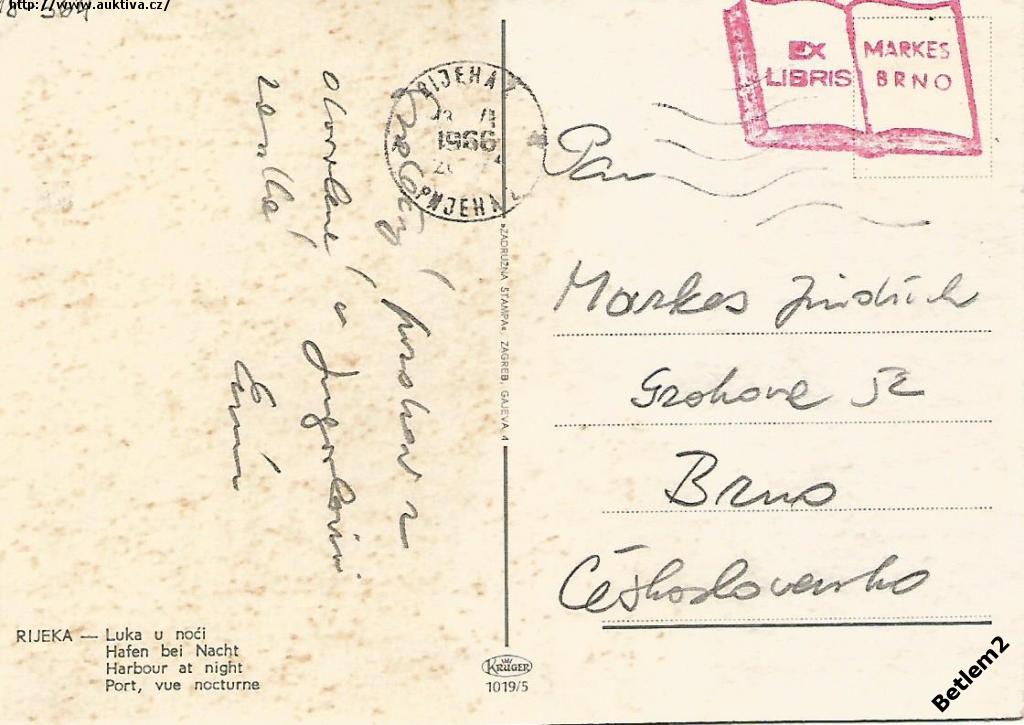 http://www.auktiva.cz/
EX LIBRIS
MARKES BRNO
RIJEKA
1966
pozdrav z
dovolené v Jugoslávii
Pan
Markes Jindřich
Grohova 52
Brno
Československo
»ZADRUŽNA ŠTAMPA«, ZAGREB, GAJEVA 4
RIJEKA — Luka u noći
Hafen bei Nacht
Harbour at night
Port, vue nocturne
KRÜGER
1019/5
Betlem2